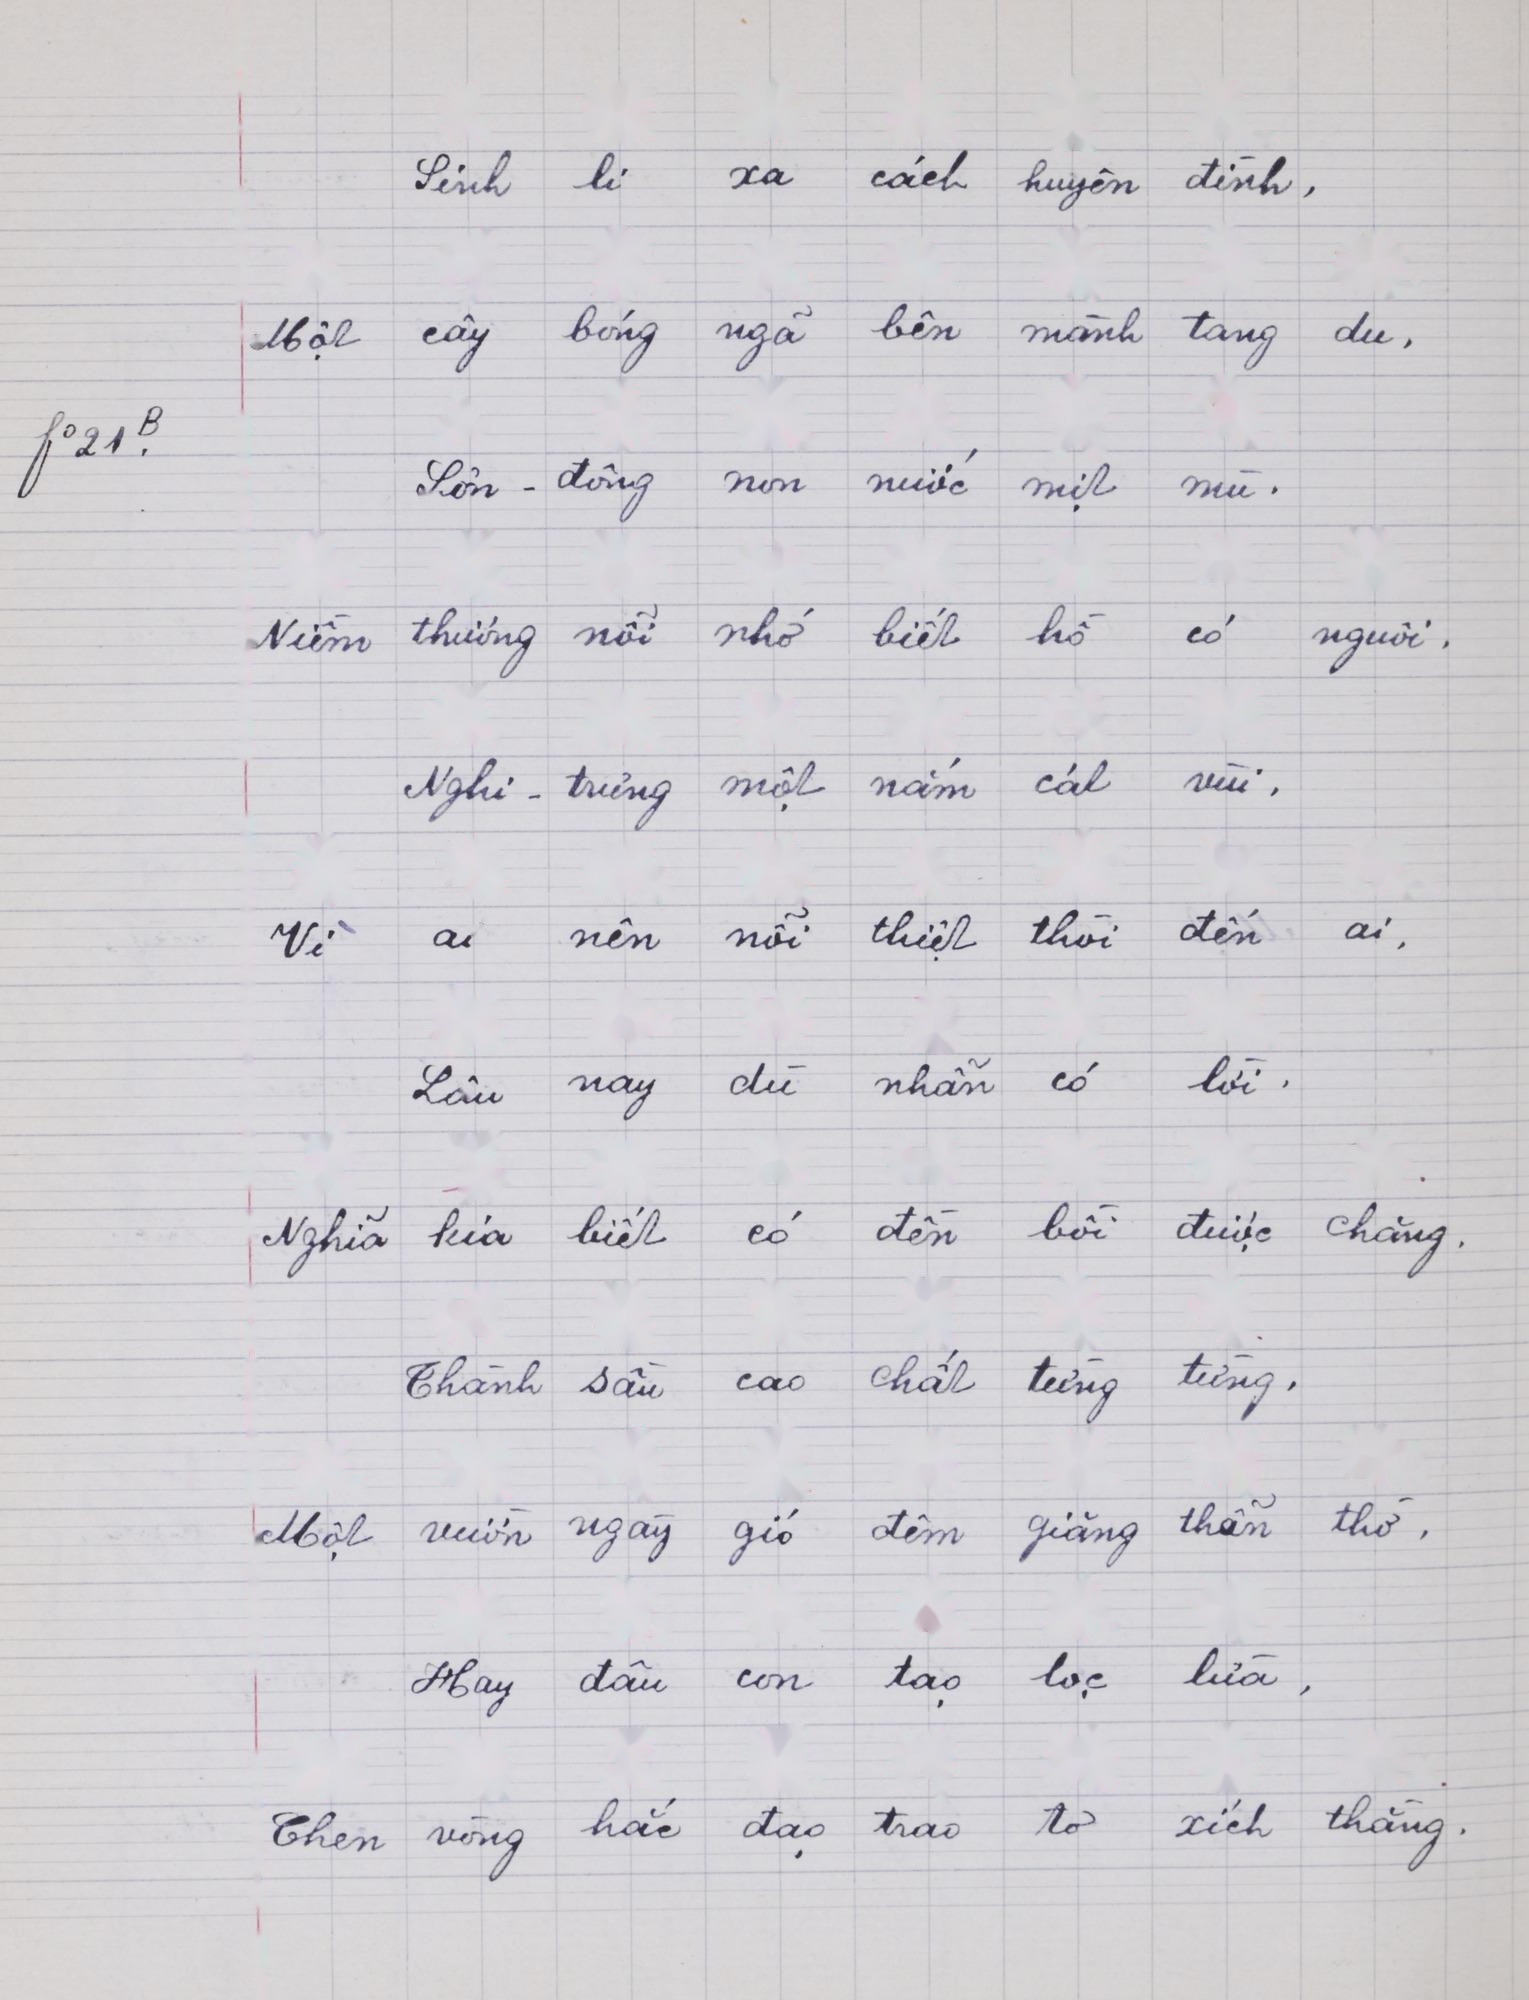 Sinh li xa cách huyên đình,
Một cây bóng ngả bên mành tang du,
fº 21ᴮ.
Sơn - đông non nước mịt mù.
Niềm thương nỗi nhớ biết hồ có người.
Nghi - trưng một nấm cát vùi,
Vì ai nên nỗi thiệt thòi đến ai,
Lâu nay dù nhẫn có lời.
Nghĩa kia biết có đền bồi được chăng.
Thành sầu cao chất từng từng,
Một vườn ngày gió đêm giăng thẩn thơ,
Hay đâu con tạo lọc lừa,
Chen vòng hắc đạo trao tơ xích thằng.